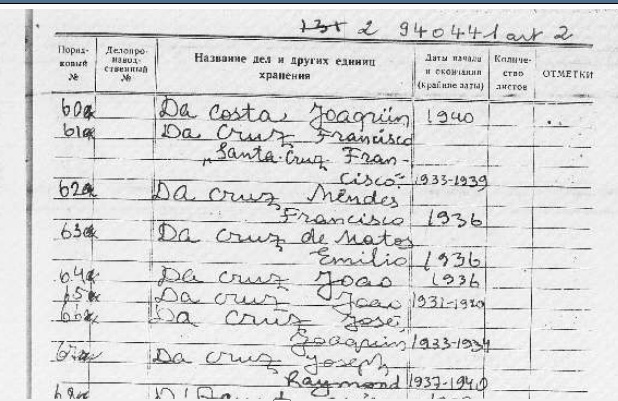 2 940441 art 2
Поряд-
ковый
№
Делопро-
извод-
ственный
№
Название дел и других единиц
хранения
Даты начала
и окончания
(крайние даты)
Количе-
ство
листов
ОТМЕТКИ
60a Da Costa, Joaquin 1940
61a Da Cruz Francisco
"Santa-Cruz Fran-
cisco" 1933-1939
62a Da Cruz Mendes
Francisco 1936
63a Da Cruz de Matos
Emilio 1936
64a Da Cruz Joao 1936
65a Da Cruz Joao
66a Da Cruz José,
Joaquin 1933-1934
67a Da Cruz Joseph
Raymond 1937-1940
68a